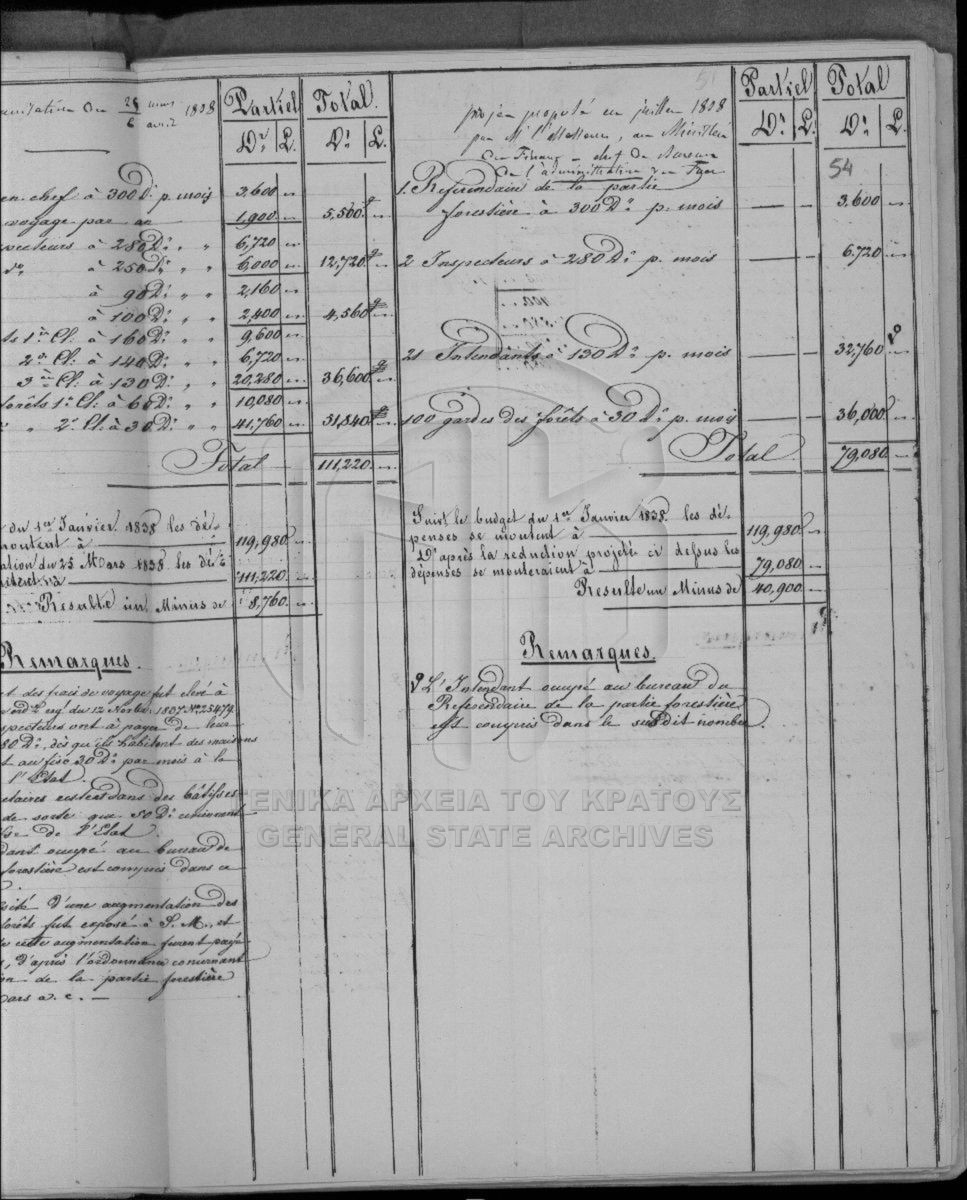 28 mars 1838
6 avril
Partiel Total.
Dr. L. Dr. L.
en chef à 300 Dr. p. mois 3.600
voyage par an 1,900 5,500
pecteurs à 280 Dr. " " 6,720
do à 250 Dr. " " 6,000 12,720
à 90 Dr. " " 2,160
à 100 Dr. " " 2,400 4,560
ts 1ère Cl: à 160 Dr. 9,600
2de Cl: à 140 Dr. " 6,720
3me Cl: à 130 Dr. " " 20,280 36,600
forêts 1e Cl: à 60 Dr. 10,080
" " 2e Cl: à 30 Dr. " 41,760 51,840
Total 111,220
du 1er Janvier 1838 les dé-
montent à 119,980
ation du 25 Mars 1838 les dé
111,220
Resulte un Minus de 8,760
Remarques.
t des frais de voyage fut élevé à
du 12 Novbr. 1837 No 25474.
specteurs ont à payer de leur
80 Dr., dès qu'ils habitent des maisons
t au fisc 30 Dr. par mois à la
l'Etat.
cetaires existent dans des bâtisses
de sorte que 50 Dr.
de l'Etat.
dant occupé au bureau de
forestière est compris dans ce
sité d'une augmentation des
forêts fut exposé à S. M., et
cette augmentation furent payé
s, d'après l'ordonnance concernant
on de la partie forestière
Mars a. c. —
51
projet proposé en juillet 1838
par Mr
chef du bureau
de l'administration
Partiel Total
Dr. L. Dr. L.
54
1. Referendaire de la partie
forestière à 300 Dr. p. mois — — 3.600
2 Inspecteurs à 280 Dr. p. mois — — 6.720
21 Intendants à 130 Dr. p. mois — — 32,760
100 gardes des forêts à 30 Dr. p. mois — — 36,000
Total 79,080
Suivt le budget du 1er Janvier 1838 les dé-
penses se montent à 119,980
D'après la reduction projeté ci dessus les
dépenses se monteraient à 79,080
Resulte un Minus de 40,900
Remarques.
L'Intendant occupé au bureau du
Referendaire de la partie forestière
est compris dans le susdit nombre
ΓΕΝΙΚΑ ΑΡΧΕΙΑ ΤΟΥ ΚΡΑΤΟΥΣ
GENERAL STATE ARCHIVES